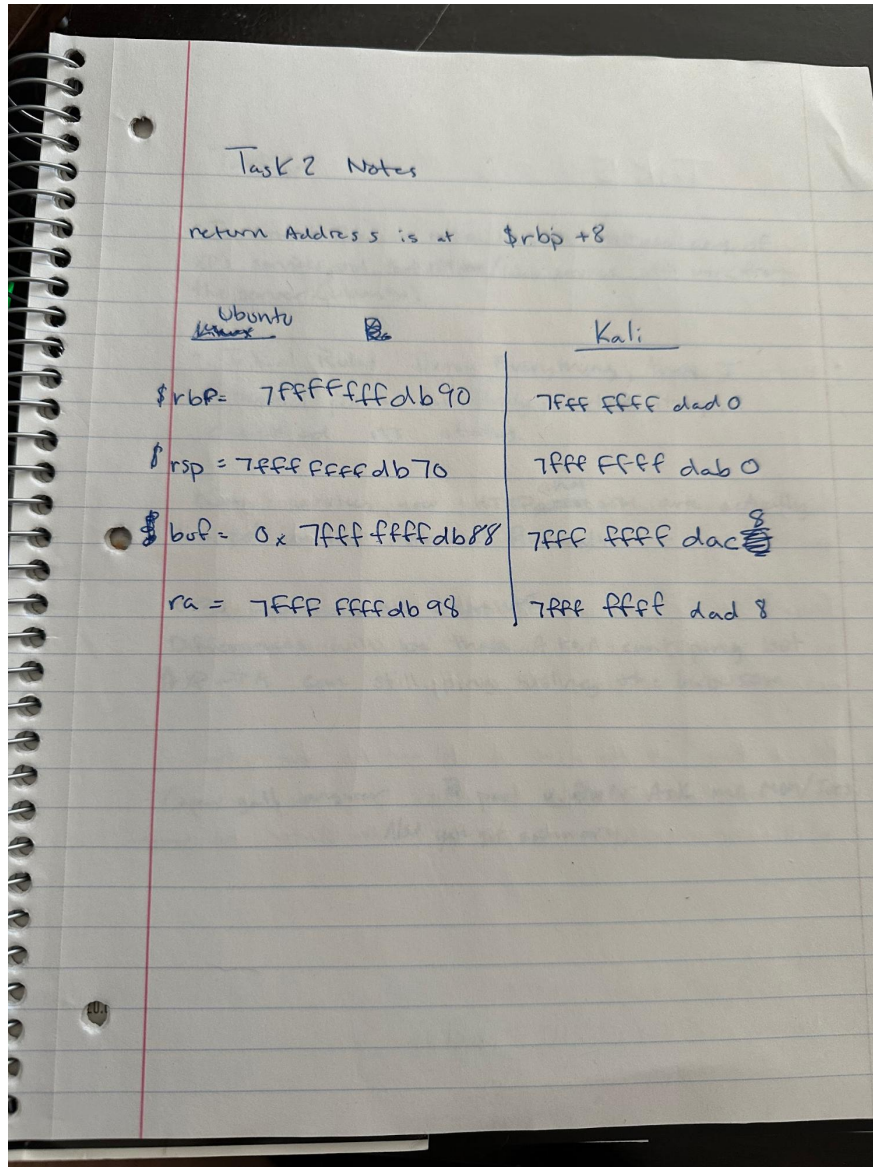 Task 2 Notes
return Address is at $rbp +8
Ubuntu Kali
$rbp= 7fffffffdb90 7fff ffff dad0
$rsp = 7fff ffffdb70 7fff ffff dab0
buf= 0x 7fff ffffdb88 7fff ffff dac8
ra = 7fff ffffdb98 7fff ffff dad8